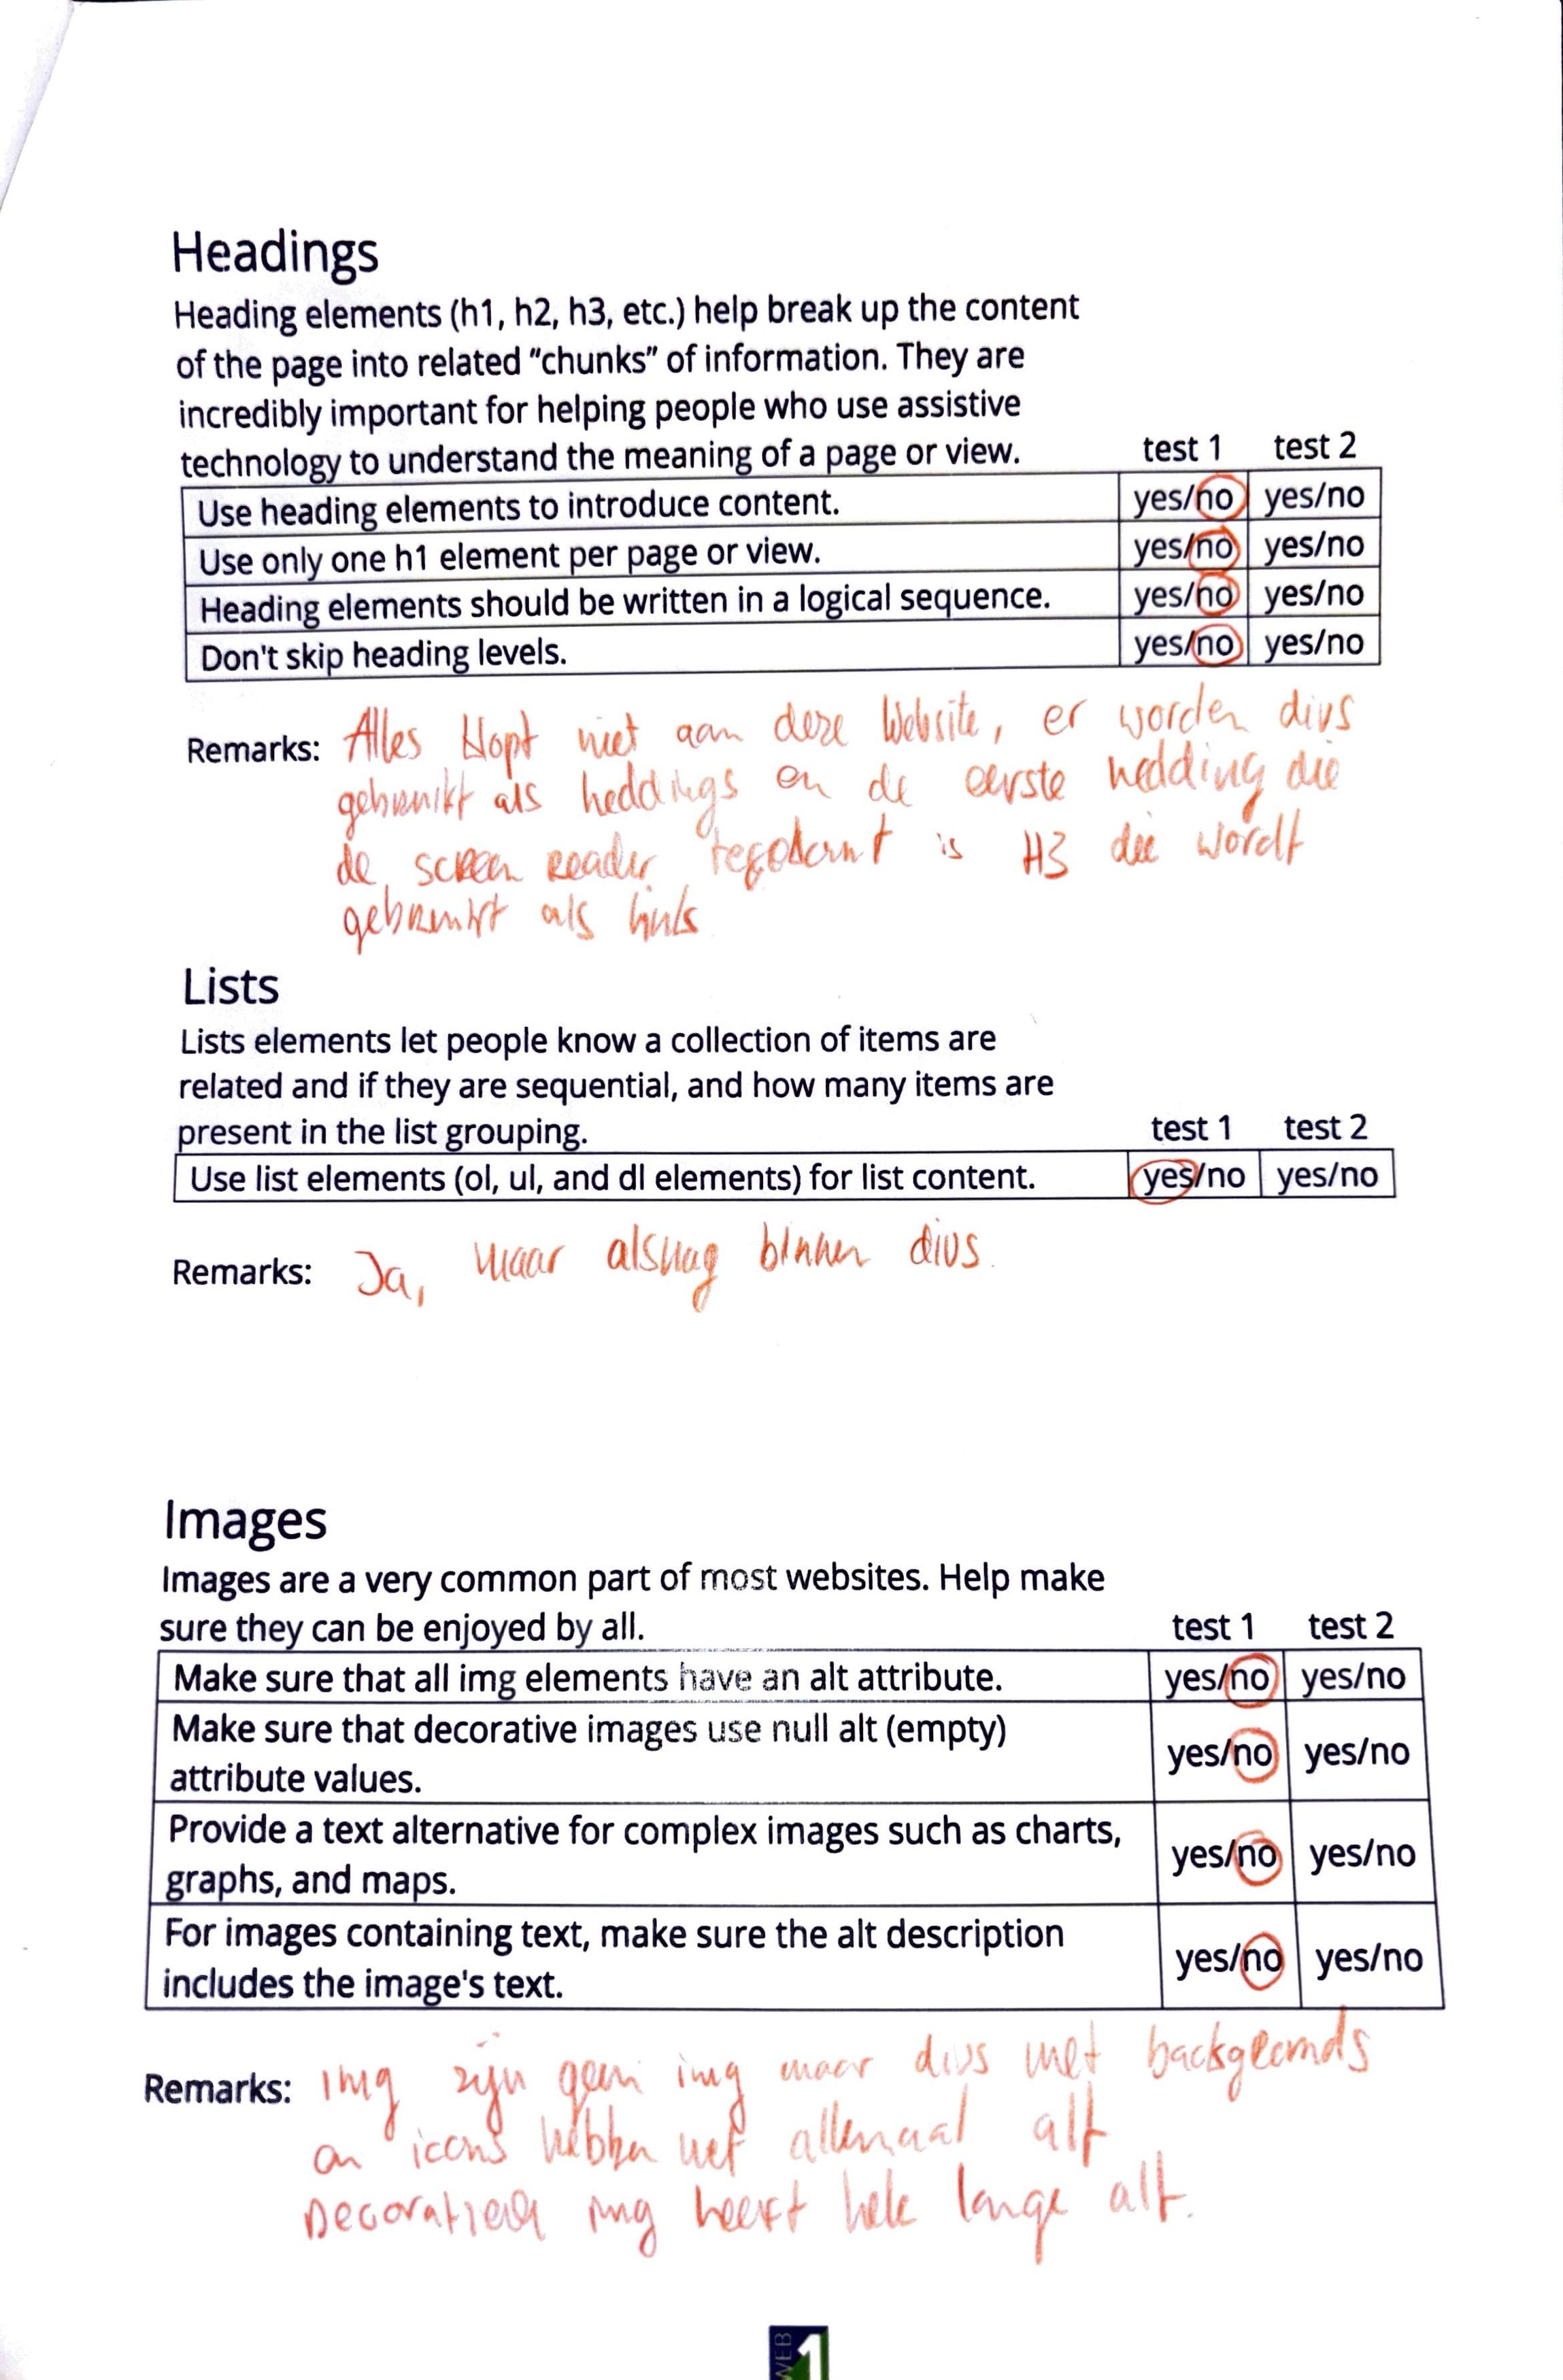 Headings
Heading elements (h1, h2, h3, etc.) help break up the content
of the page into related "chunks" of information. They are
incredibly important for helping people who use assistive
technology to understand the meaning of a page or view. test 1 test 2
Use heading elements to introduce content. yes/no yes/no
Use only one h1 element per page or view. yes/no yes/no
Heading elements should be written in a logical sequence. yes/no yes/no
Don't skip heading levels. yes/no yes/no
Remarks: Alles klopt niet aan deze Website, er worden divs
gebruikt als heddings en de eerste hedding die
de screen reader is H3 die wordt
gebruikt als links
Lists
Lists elements let people know a collection of items are
related and if they are sequential, and how many items are
present in the list grouping. test 1 test 2
Use list elements (ol, ul, and dl elements) for list content. yes/no yes/no
Remarks: Ja, maar alsnog binnen divs.
Images
Images are a very common part of most websites. Help make
sure they can be enjoyed by all. test 1 test 2
Make sure that all img elements have an alt attribute. yes/no yes/no
Make sure that decorative images use null alt (empty)
attribute values. yes/no yes/no
Provide a text alternative for complex images such as charts,
graphs, and maps. yes/no yes/no
For images containing text, make sure the alt description
includes the image's text. yes/no yes/no
Remarks: img zijn geen img maar divs met backgrounds
en icons hebben niet allemaal alt
img heeft hele lange alt.
WEB
1